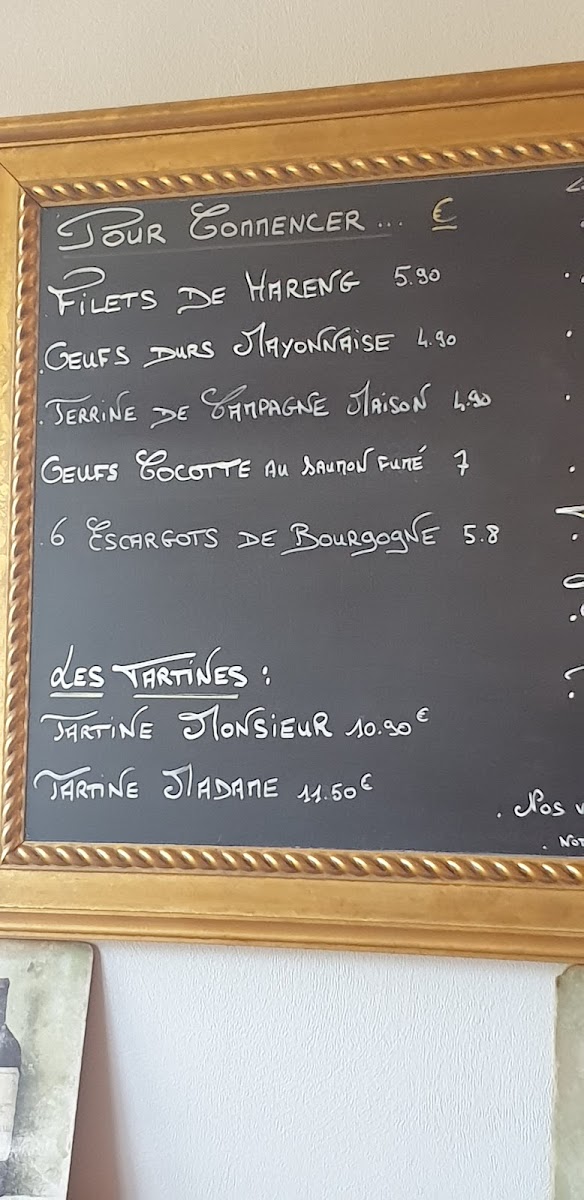 Pour Commencer... €
Filets de Hareng 5.90
. Oeufs durs Mayonnaise 4.90
. Terrine de Campagne Maison 4.90
Oeufs Cocotte au saumon fumé 7
. 6 Escargots de Bourgogne 5.8
Les Tartines :
Tartine Monsieur 10.90€
Tartine Madame 11.50€
. Nos
. Not